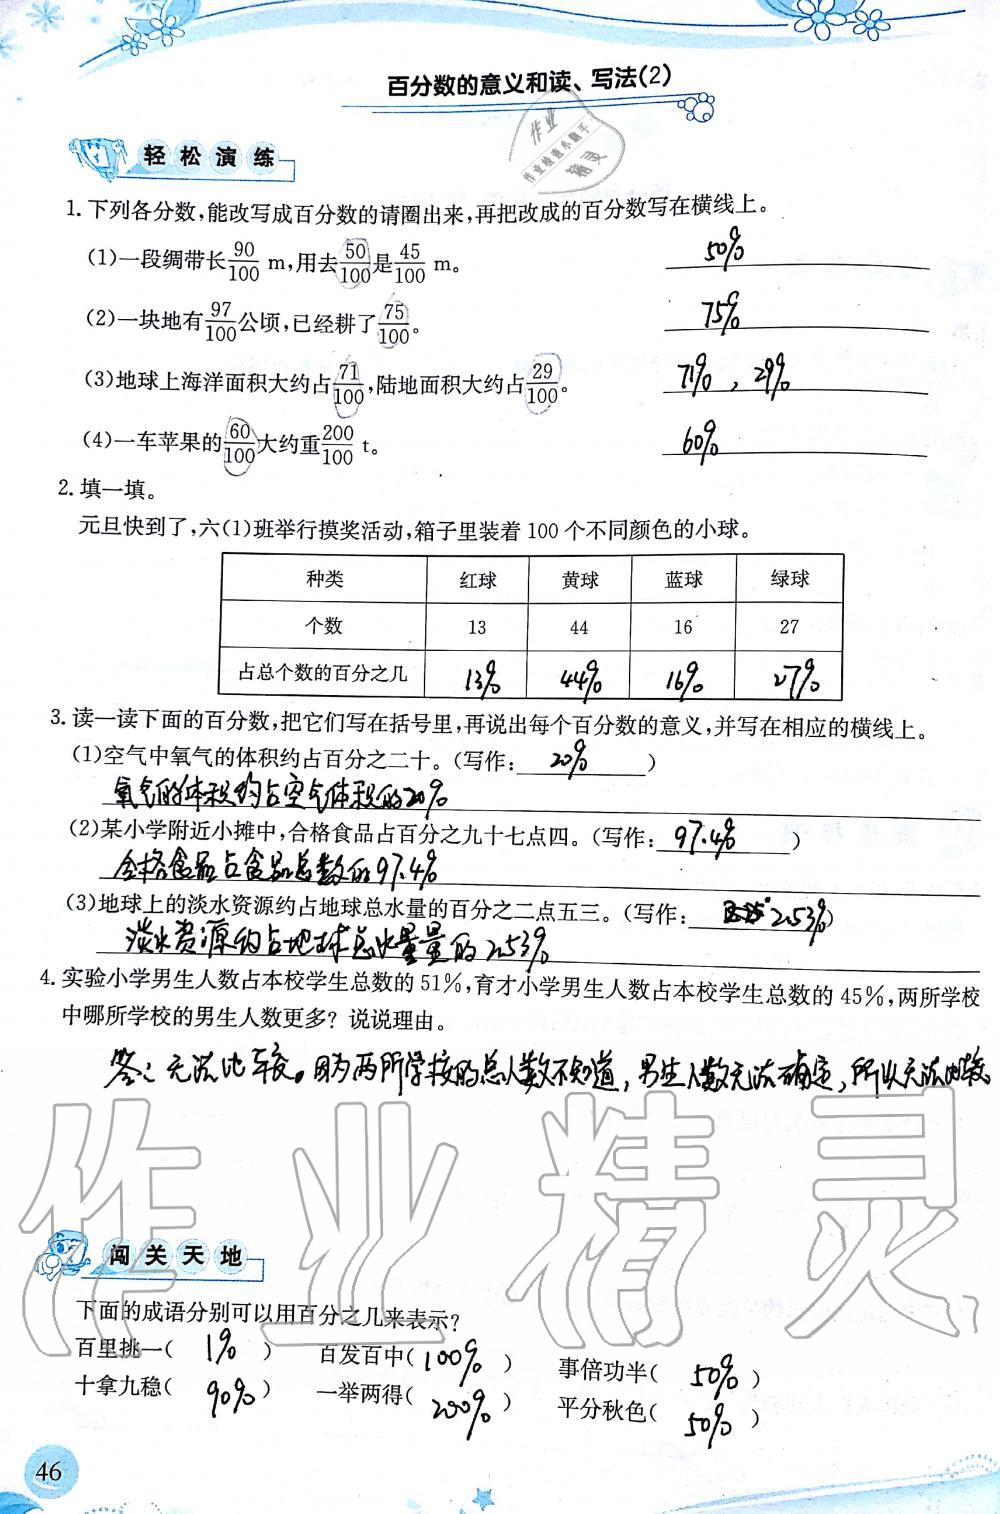 百分数的意义和读、写法(2)
作业
作业检查小助手
精灵
轻松演练
1.下列各分数,能改写成百分数的请圈出来,再把改成的百分数写在横线上。
(1)一段绸带长90/100 m,用去50/100是45/100 m。 50%
(2)一块地有97/100公顷,已经耕了75/100。 75%
(3)地球上海洋面积大约占71/100,陆地面积大约占29/100。 71%,29%
(4)一车苹果的60/100大约重200/100 t。 60%
2.填一填。
元旦快到了,六(1)班举行摸奖活动,箱子里装着100个不同颜色的小球。
种类 红球 黄球 蓝球 绿球
个数 13 44 16 27
占总个数的百分之几 13% 44% 16% 27%
3.读一读下面的百分数,把它们写在括号里,再说出每个百分数的意义,并写在相应的横线上。
(1)空气中氧气的体积约占百分之二十。(写作: 20% )
氧气的体积约占空气体积的20%
(2)某小学附近小摊中,合格食品占百分之九十七点四。(写作: 97.4% )
合格食品占食品总数的97.4%
(3)地球上的淡水资源约占地球总水量的百分之二点五三。(写作: 2.53%)
淡水资源约占地球总水量的2.53%
4.实验小学男生人数占本校学生总数的51%,育才小学男生人数占本校学生总数的45%,两所学校
中哪所学校的男生人数更多?说说理由。
答:无法比较。因为两所学校的总人数不知道,男生人数无法确定,所以无法比较
作业精灵
闯关天地
下面的成语分别可以用百分之几来表示?
百里挑一( 1% ) 百发百中(100%) 事倍功半( 50% )
十拿九稳( 90% ) 一举两得( 200% ) 平分秋色( 50% )
46